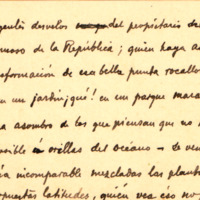 gentes desvelos del propietario de
moso de la República; quien haya a
sformación de esa bella punta rocallo
en un jardin, ¡qué! en un parque mara
ra asombro de los que piensan que no
osible á orillas del océano - te ven
ía incomparable mezcladas las plant
puestas latitudes, quién vea eso no